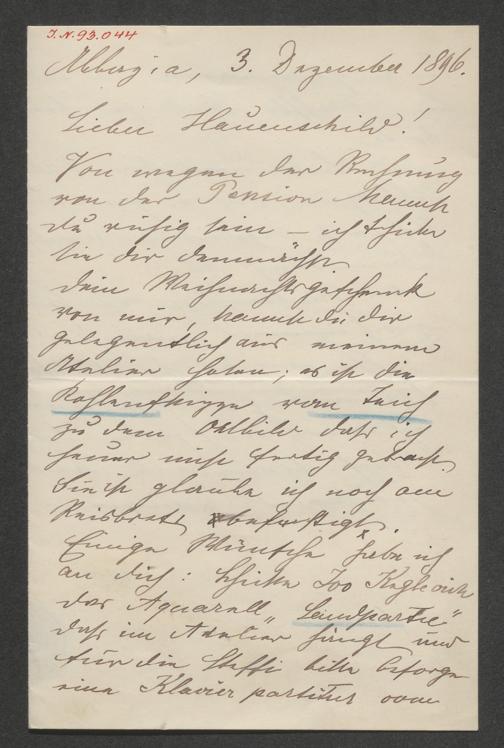 J.N. 93.044
Abbazia, 3. Dezember 1896.
Lieber Hauenschild!
Von wegen der Rechnung
von der Pension kannst
du ruhig sein – ich schicke
sie dir demnächst
dein Weihnachtsgeschenk
von mir, kannst du dir
gelegentlich aus meinem
Atelier holen; es ist die
Kohlenskizze vom Teich
zu dem Oelbild daß ich
heuer nicht fertig gebracht.
Sie ist glaube ich noch am
Reisbrett befestigt.
Einige Wünsche habe ich
an dich: Schicke
das Aquarell „Landpartie"
daß im Atelier hängt und
für die Steffi bitte besorge
eine Klavierpartitur vom